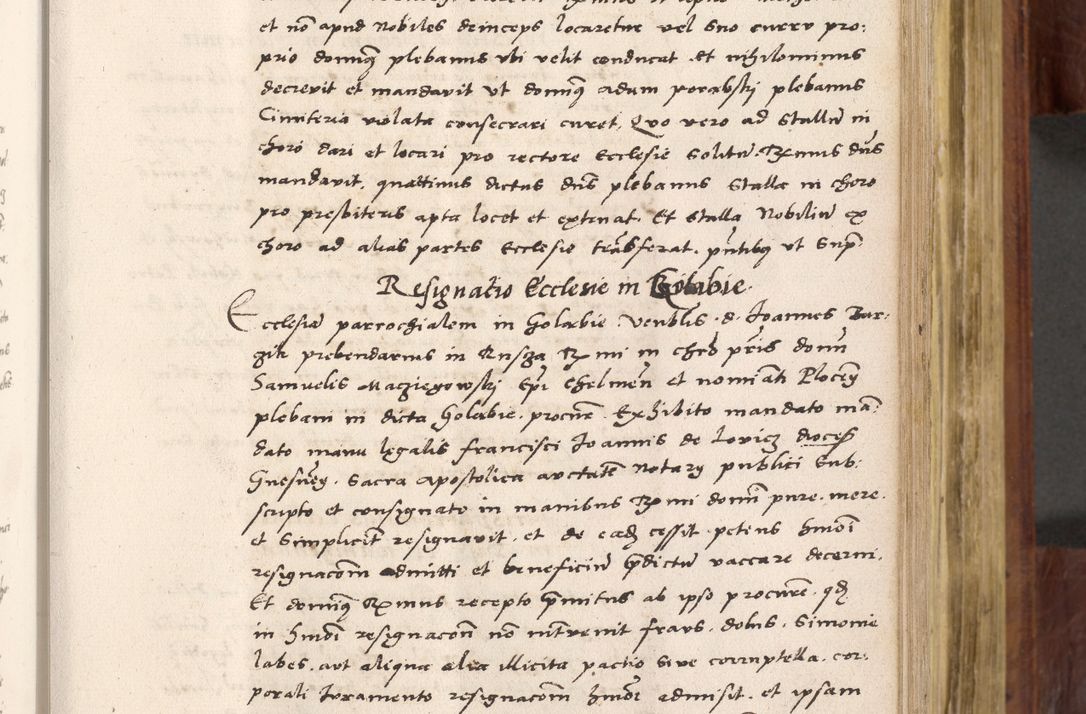 et nō apud Nobiles deinceps locaretur vel suo curru pro:
prio dominꝗ plebanus vbi velit conducat et nihilominus
decrevit et mandavit vt dominꝗ Adam porabskj plebanus
Cimiteria violata consecrari curet, Quo vero ad Stallū in
choro dari et locari pro rectore Ecclesie solitū. Rmus dns
mandavit, quattinus dictus dns plebanus stalla in choro
pro presbiteris apta locet et extruat. Et stalla Nobiliū ex
choro ad alias partes Ecclesie trāsferat. pntibꝗ vt Supͬ.
Resignatio Ecclesie in Golabie.
Ecclesiā parrochialem in Golabie. venblis. d. Joannes Bar:
prebendarius in Rmi in chro pris domī
Samuelis Maczieyowskj Epi Chelmeñ et nomīati Ploceñ
plebani in dicta Golabie. procur. Exhibito mandato mā:
dato manu legalis francisci Joannis de Lovicz dioces
Gnesneñ. Sacra Apostolica auctate Notarÿ publici Sub:
scripto et consignato in manibus Rmi domī pure. mere.
et Simplicit resignavit. et de eadꝫ cessit. petens hmoi
resignacom admitti et beneficiū pdictū vaccare decerni.
Et dominꝗ Rmus recepto pmitus ab ipso procure. qdꝫ
in hmoi resignacom nō intvenit fraus. dolus. Simonie
labes. aut aliqua alia illicita pactio sive corruptella. cor:
porali Juramento resignacom hmoi admisit. et ipsam